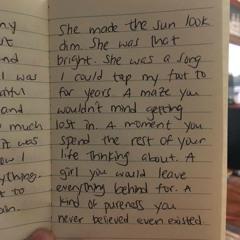 my
and
I was
and
much
it was
She made the sun look
dim. She was that
bright. She was a song
I could tap my foot to
for years. A maze you
wouldn't mind getting
lost in. A moment you
spend the rest of your
life thinking about. A
girl you would leave
everything behind for. A
kind of pureness you
never believed even existed.